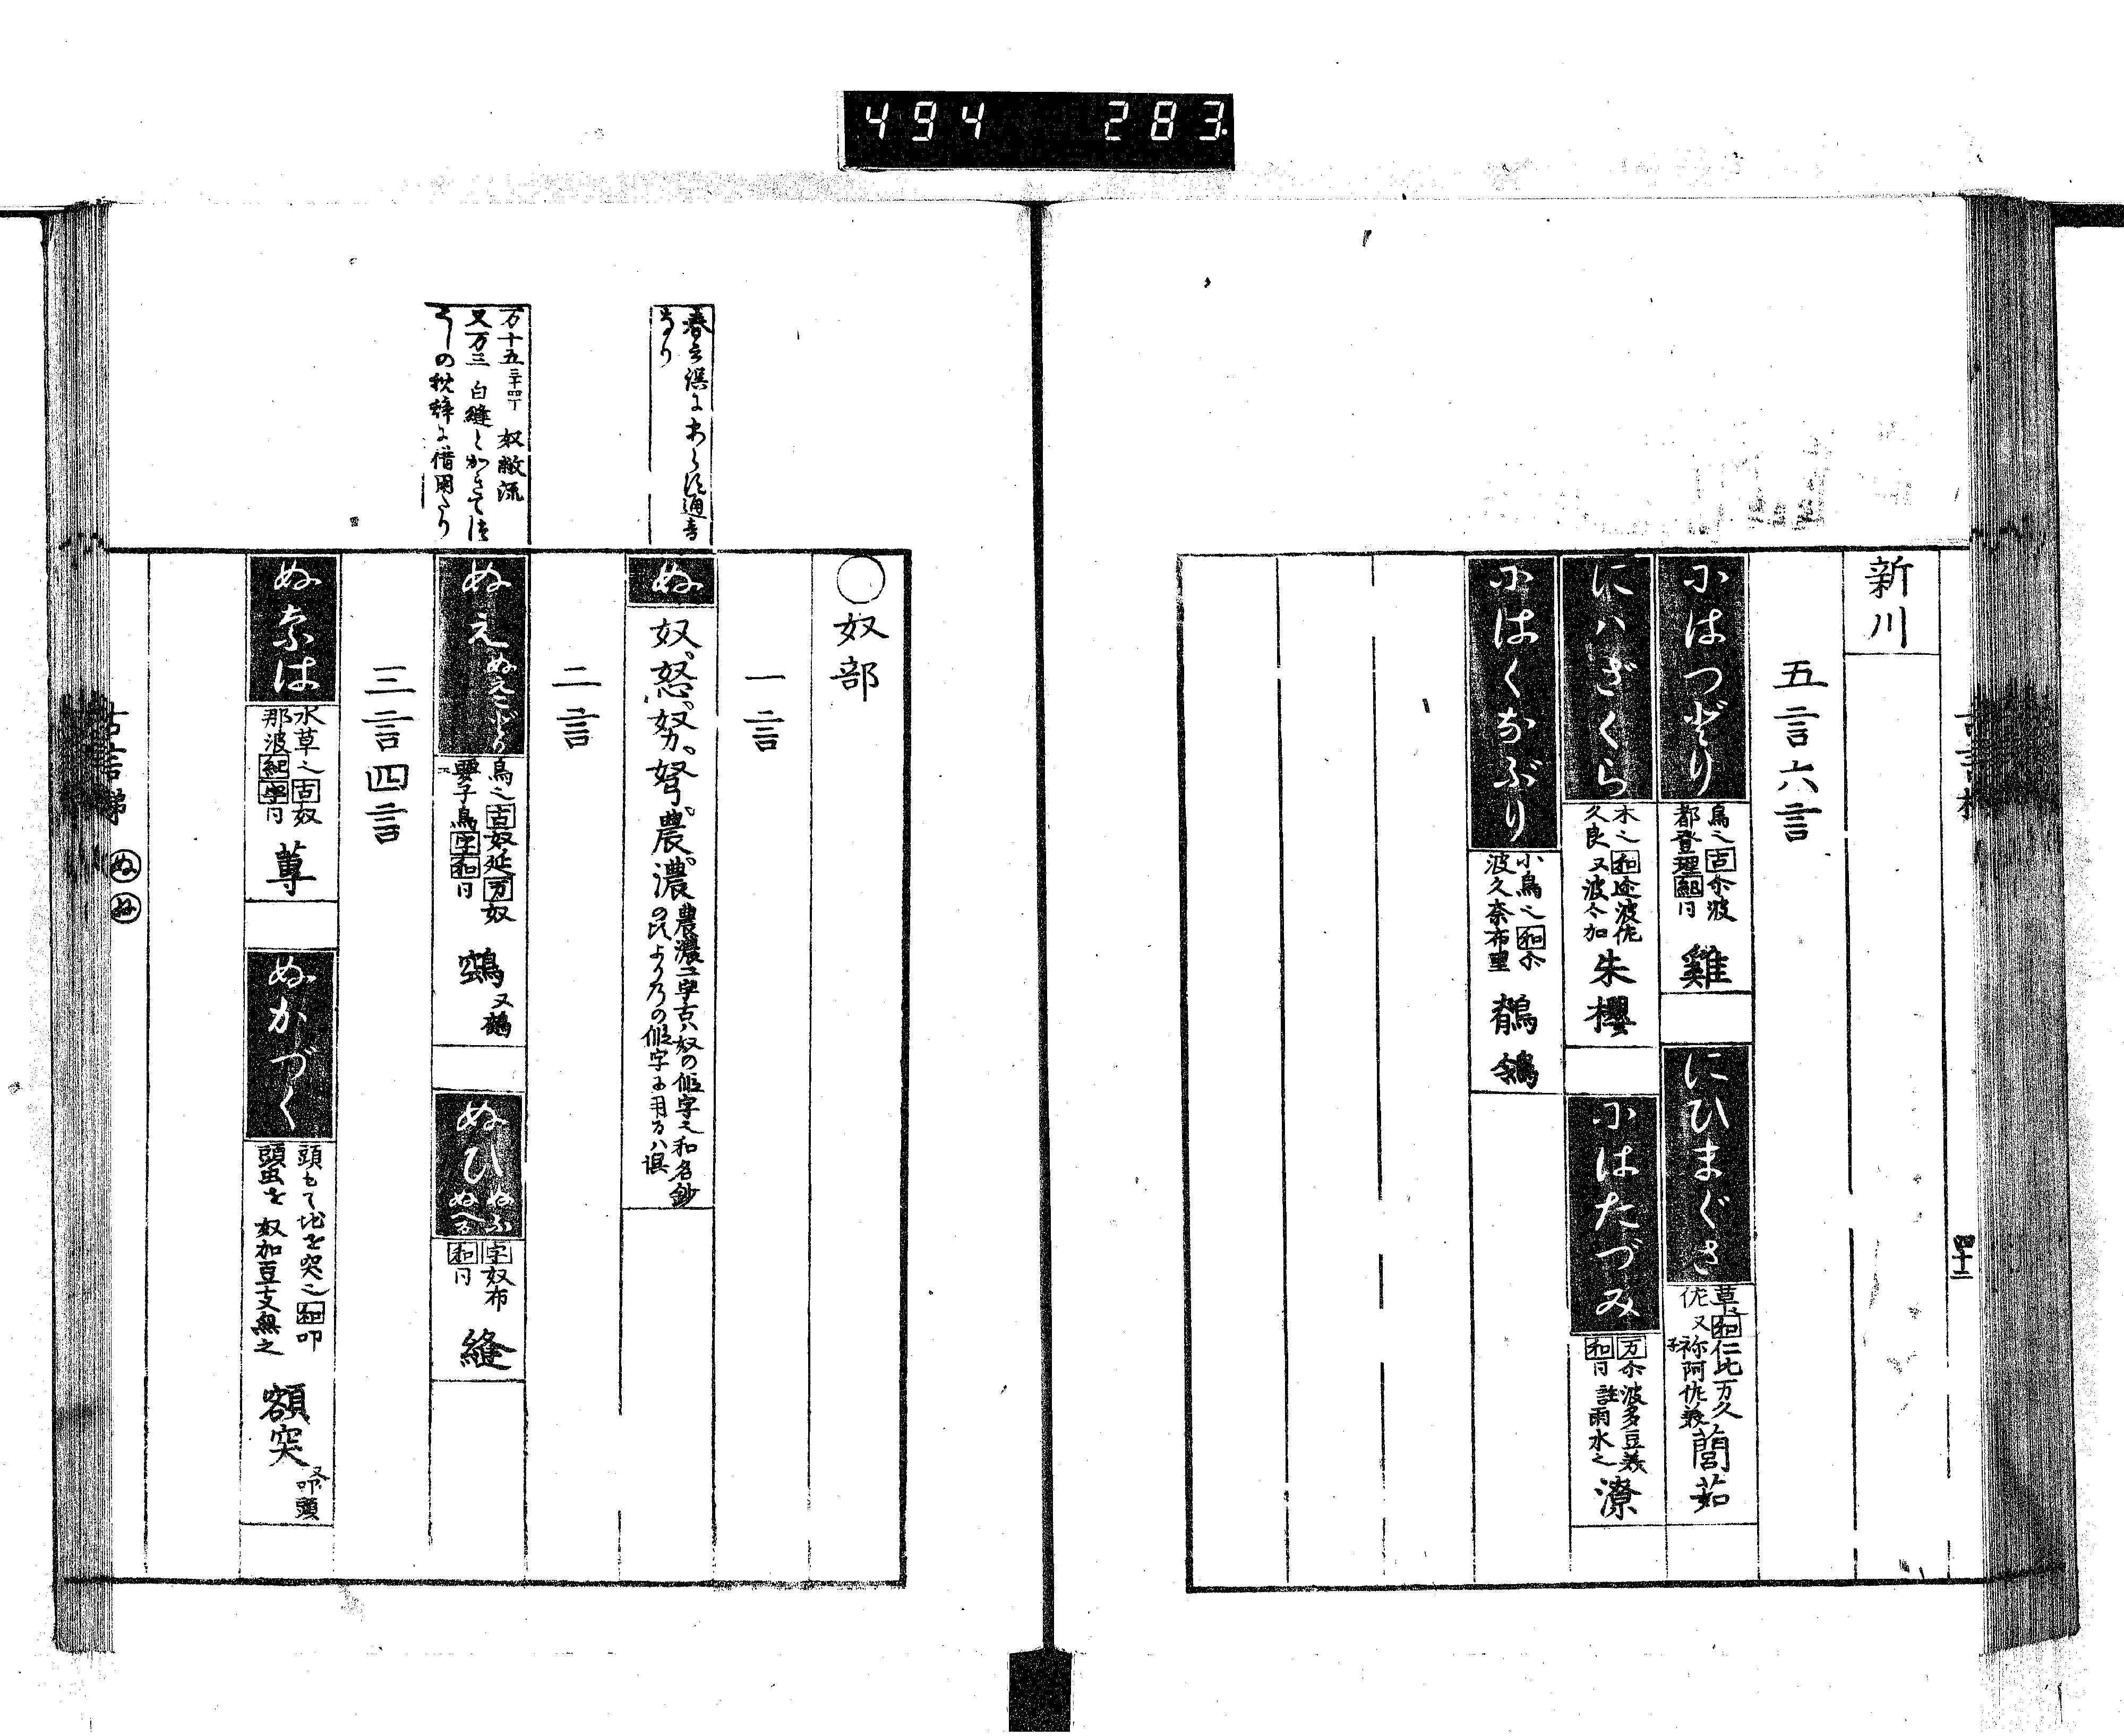 494 283
新川
五言六言
にはつどり 鳥之古尒波
都登理紀同 雞
にひまぐさ 草之和仁比万久
佐又祢阿佐美 藺茹
にハざくら 木之和迩波佐
久良又波々加 朱櫻
にはたづみ 万尒波多豆美
和同註雨水之 潦
にはくなぶり 小鳥之和尒
波久奈布里 鶺鴒
四十二
○奴部
一言
ぬ 奴怒努弩農濃 農濃二字古ハ奴の假字之和名鈔
の比より乃の假字に用るハ誤
二言
ぬえ ぬえこどり 鳥之古奴延万奴
要子鳥字和同 鵼 又鵺
ぬひ ぬふ
ぬへる 字奴布
和同 縫
三言四言
ぬなは 水草之古奴
那波紀字同 蓴
ぬかづく 頭もて地を突之和叩
頭虫を奴加豆支無之 額突 又叩頭
春云誤にあらす通音
なり
万十五三十四丁 奴敝流
又万三 白縫とかきてつ
くしの枕辞に借用たり
古言梯 ぬ ぬ